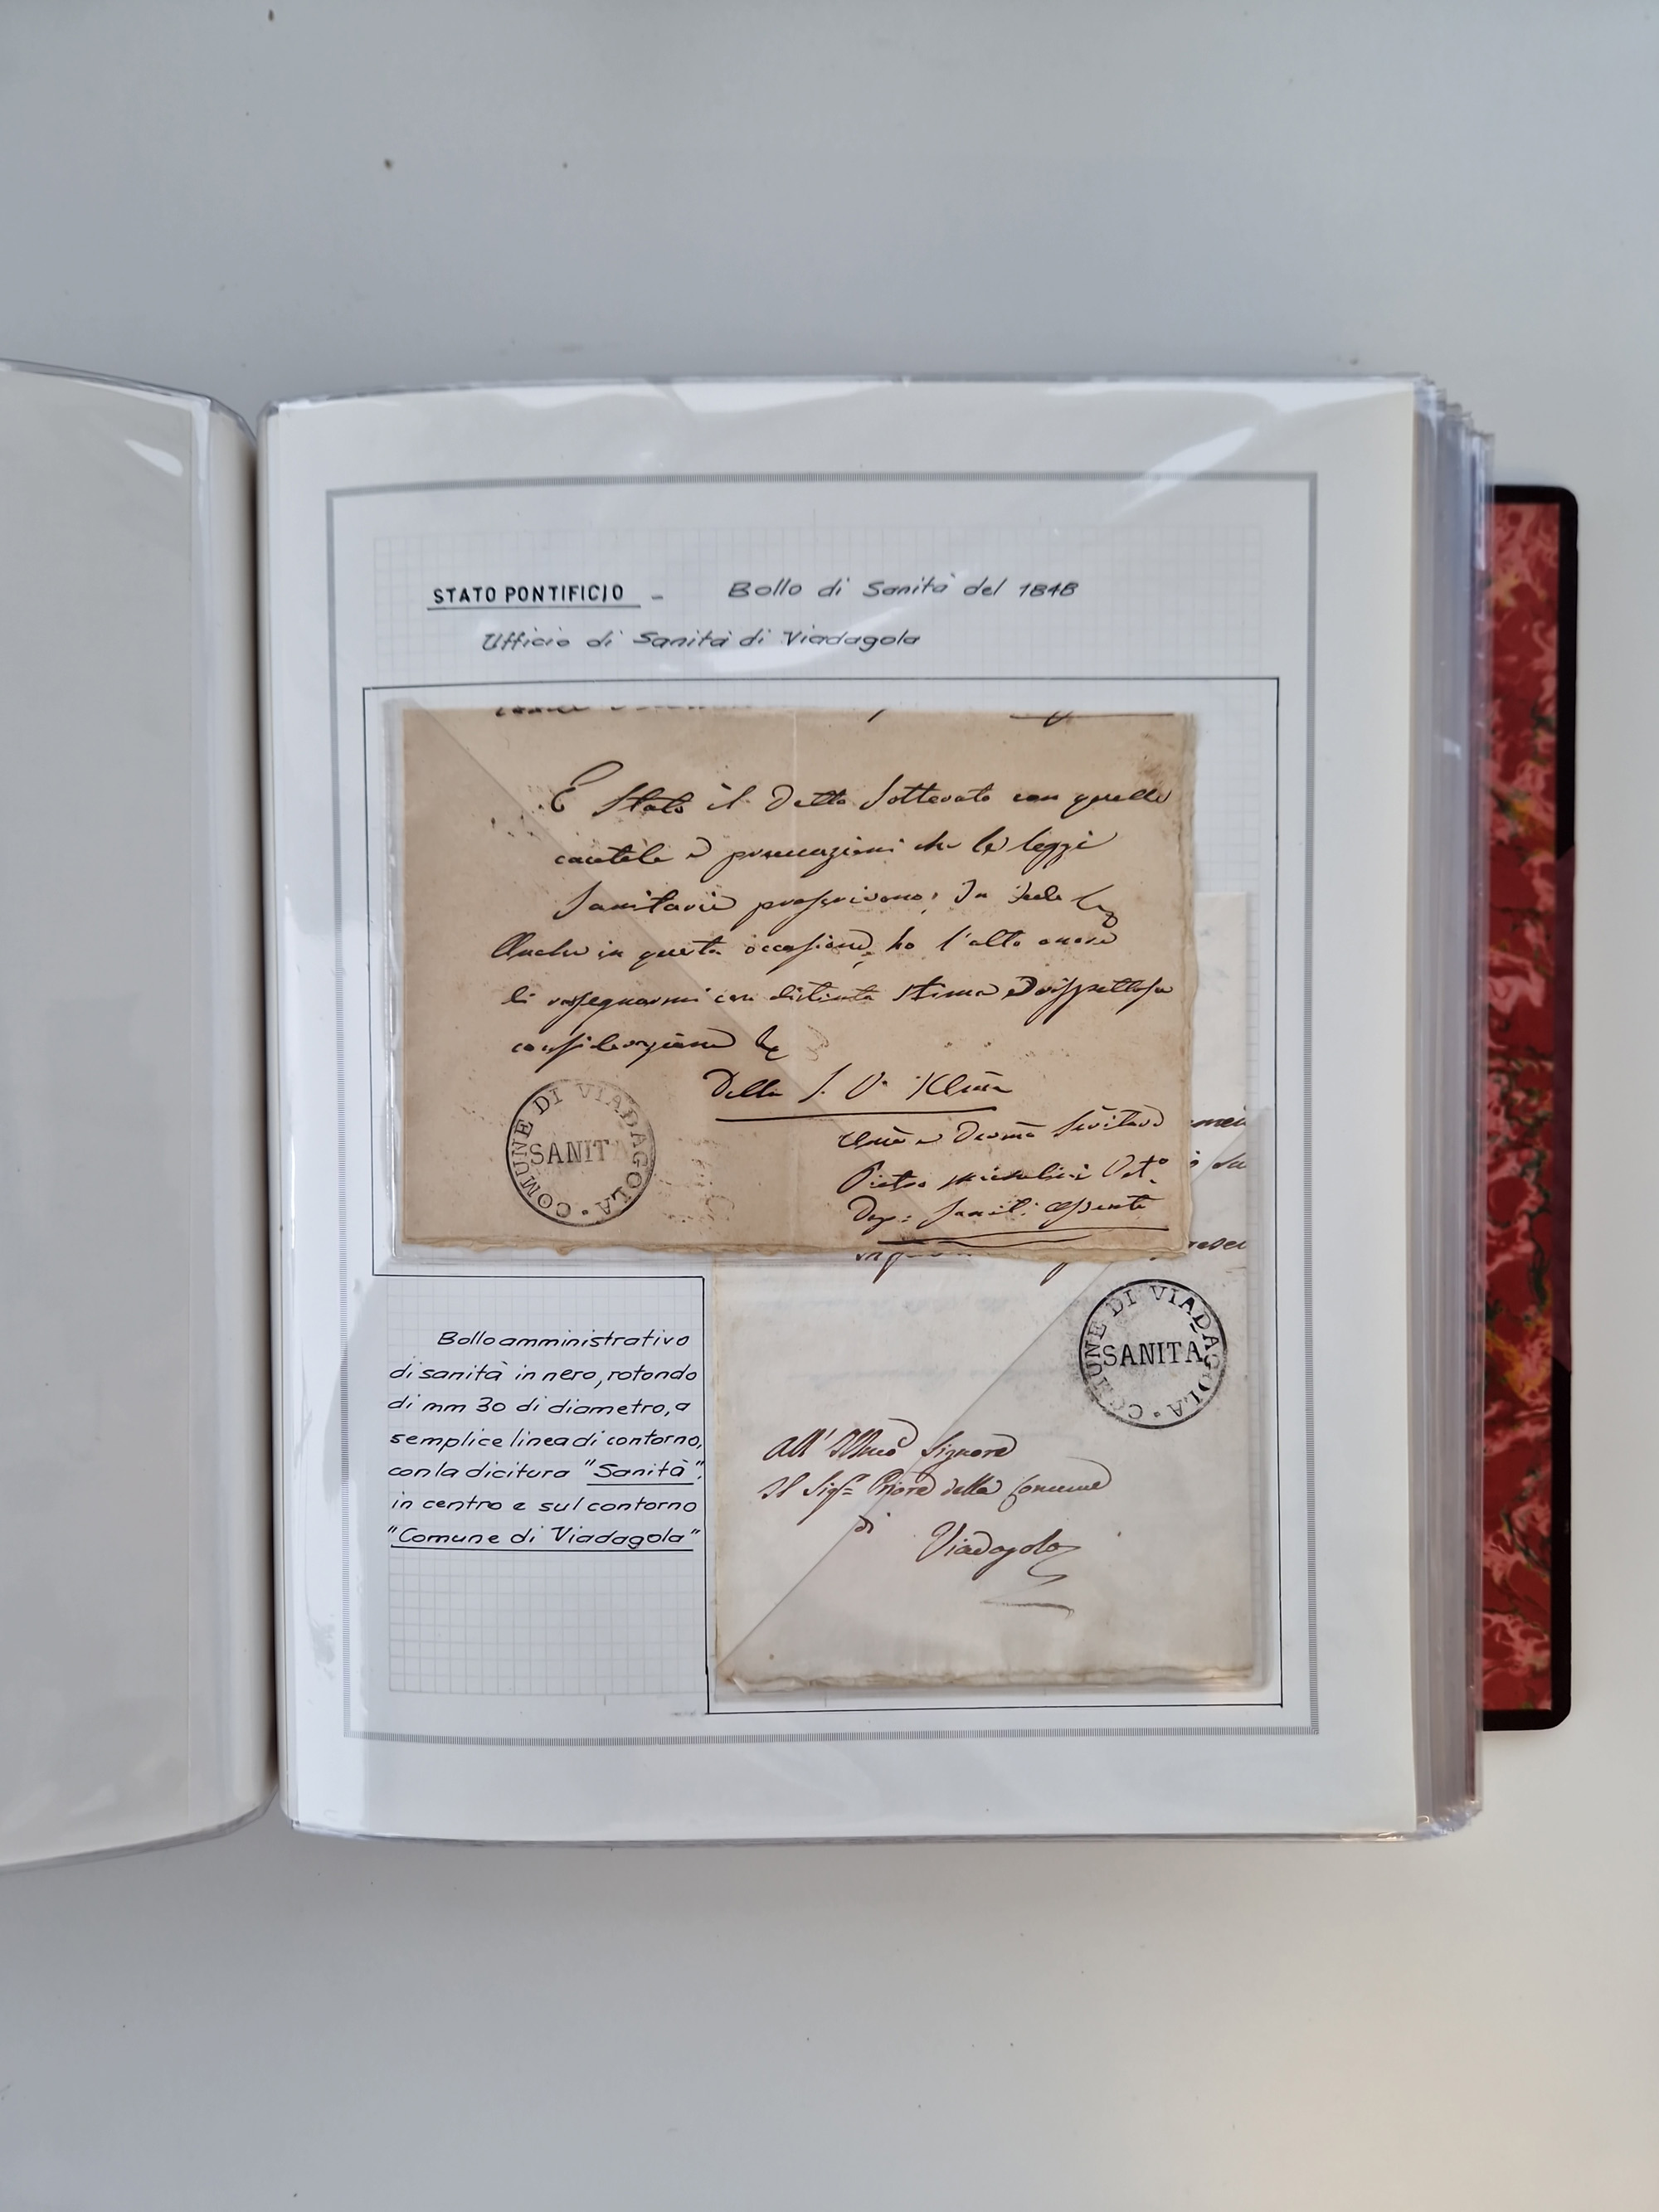 STATO PONTIFICIO - Bollo di Sanità del 1848
Ufficio di Sanità di Viadagola
È Stato il detto Sotterato con quelle
cautele e precauzioni che le leggi
Sanitarie prescrivono; In fede
Anche in questa occasione, ho l'alto onore
di rassegnarmi con distinta stima e rispettosa
considerazione
Della S. V. Illma
Pietro Michelini
COMUNE DI VIADAGOLA
SANITA
COMUNE DI VIADAGOLA
SANITA
Bollo amministrativo
di sanità in nero, rotondo
di mm 30 di diametro, a
semplice linea di contorno,
con la dicitura "Sanità",
in centro e sul contorno
"Comune di Viadagola"
All' Illmo Signore
Il Sigr Priore della Comune
di
Viadagola